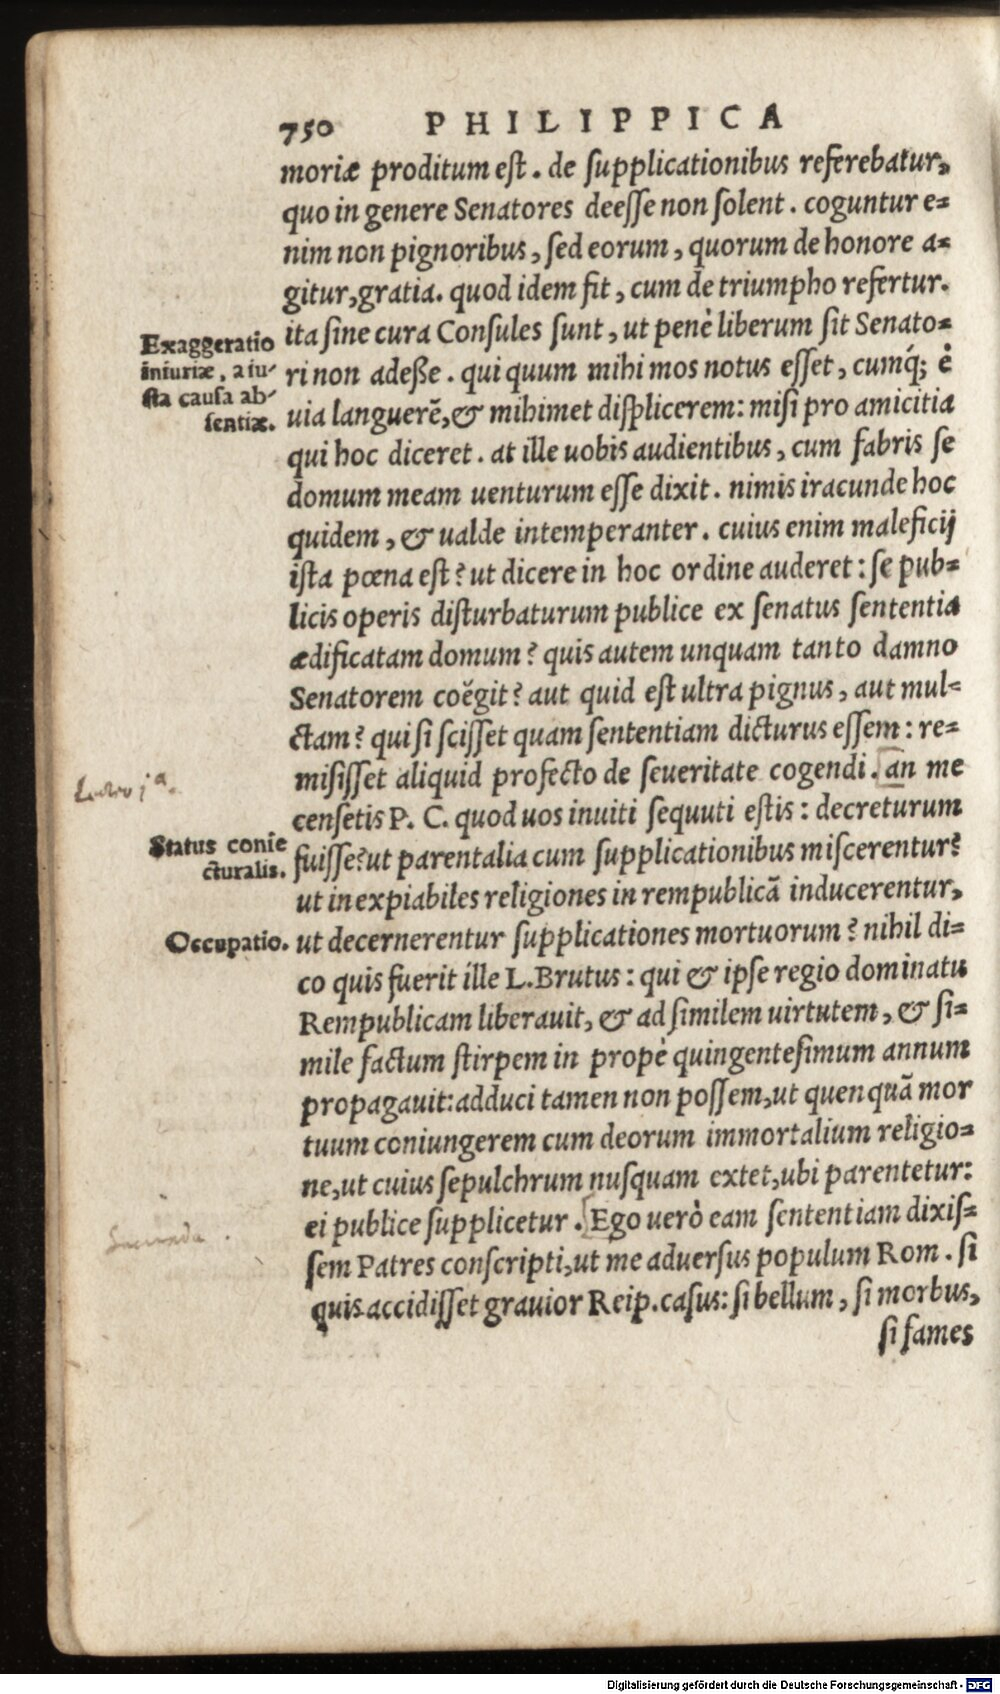 750 PHILIPPICA
moriæ proditum eſt. de ſupplicationibus referebatur,
quo in genere Senatores deeſſe non ſolent. coguntur e=
nim non pignoribus, ſed eorum, quorum de honore a=
gitur, gratia. quod idem fit, cum de triumpho refertur.
Exaggeratio
iniuriæ, a iu-
ſta cauſa ab-
ſentiæ.
ita ſine cura Conſules ſunt, ut penè liberum ſit Senato=
ri non adeße. qui quum mihi mos notus eſſet, cumq́; è
uia languerẽ, & mihimet diſplicerem: miſi pro amicitia
qui hoc diceret. at ille uobis audientibus, cum fabris ſe
domum meam uenturum eſſe dixit. nimis iracunde hoc
quidem, & ualde intemperanter. cuius enim maleficij
iſta pœna eſt? ut dicere in hoc ordine auderet: ſe pub=
licis operis diſturbaturum publice ex ſenatus ſententia
ædificatam domum? quis autem unquam tanto damno
Senatorem coëgit? aut quid eſt ultra pignus, aut mul=
ctam? qui ſi sciſſet quam ſententiam dicturus eſſem: re=
miſiſſet aliquid profecto de ſeueritate cogendi. an me
cenſetis P. C. quod uos inuiti ſequuti eſtis: decreturum
Status conie
cturalis.
fuiſſe? ut parentalia cum ſupplicationibus miſcerentur?
ut inexpiabiles religiones in rempublicã inducerentur,
Occupatio.
ut decernerentur ſupplicationes mortuorum? nihil di=
co quis fuerit ille L. Brutus: qui & ipſe regio dominatu
Rempublicam liberauit, & ad ſimilem uirtutem, & ſi=
mile factum ſtirpem in propè quingenteſimum annum
propagauit: adduci tamen non poſſem, ut quenquã mor
tuum coniungerem cum deorum immortalium religio=
ne, ut cuius ſepulchrum nuſquam extet, ubi parentetur:
ei publice ſupplicetur. Ego uerò eam ſententiam dixiſ=
ſem Patres conſcripti, ut me aduerſus populum Rom. ſi
quis accidiſſet grauior Reip. caſus: ſi bellum, ſi morbus,
ſi fames
Digitalisierung gefördert durch die Deutsche Forschungsgemeinschaft - DFG